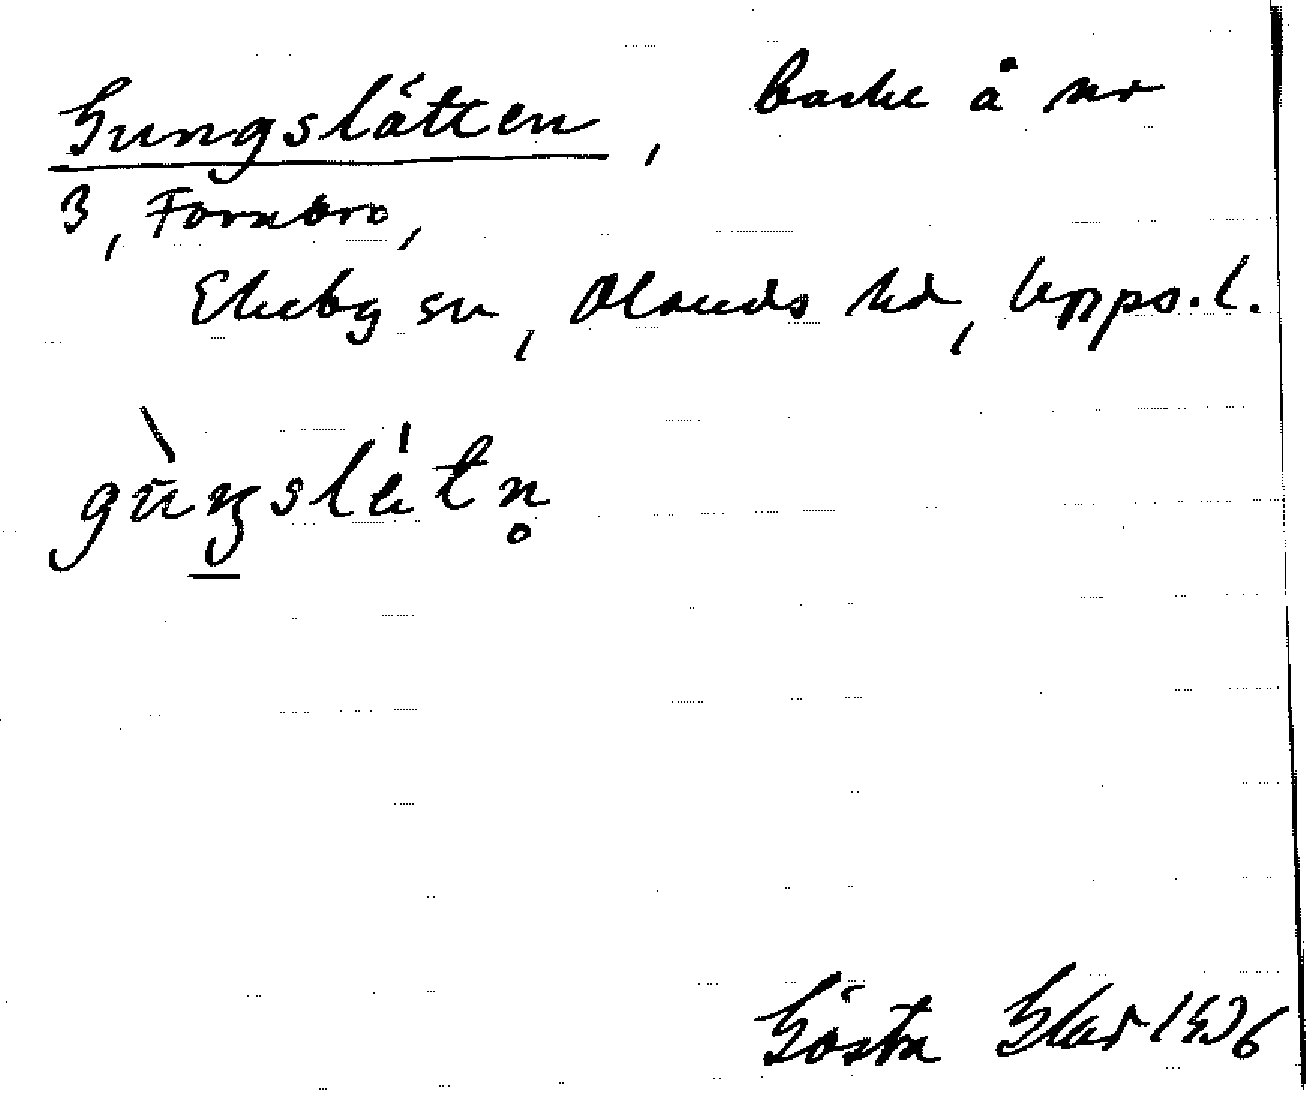 Gungslätten, backe å nr
3, Fornbro,
Ekeby sn, Olands hd, Upps.l.
gùŋslètn̥
Gösta Glad 1936